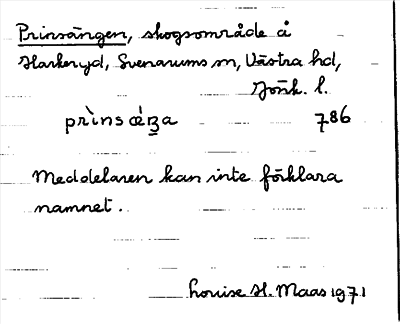 Prinsängen, skogsområde å
Harkeryd, Svenarums sn, Västra hd,
Jönk. l.
prìnsǽŋa 786
Meddelaren kan inte förklara
namnet.
Louise H. Maas 1971